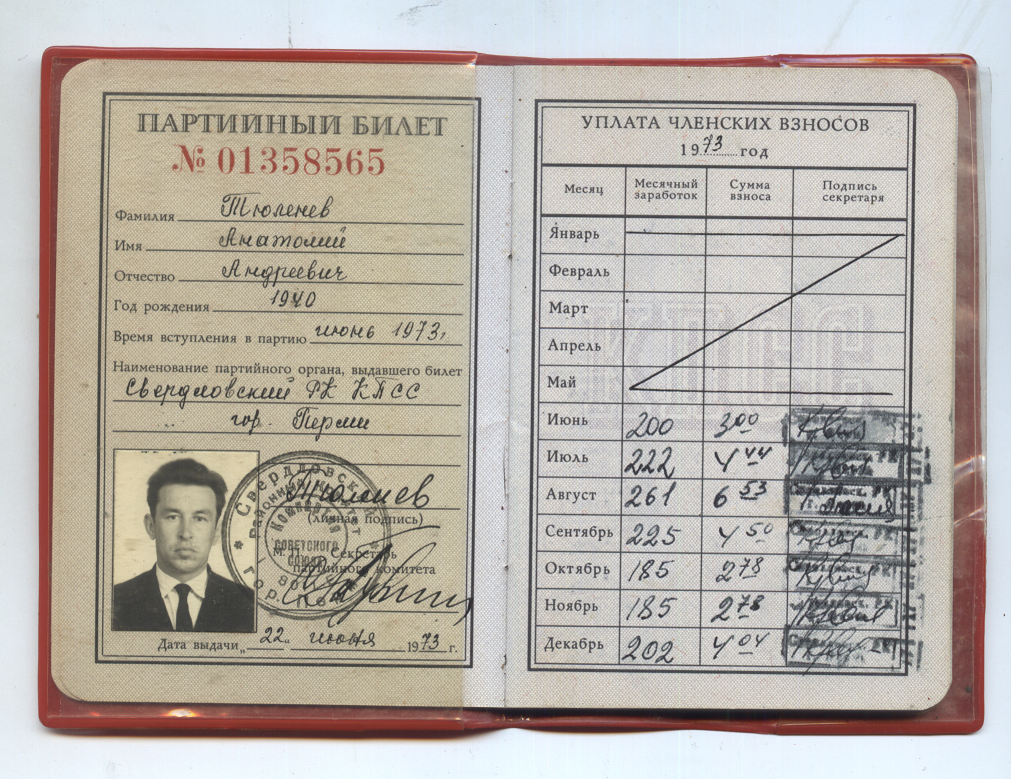 ПАРТИЙНЫЙ БИЛЕТ
№ 01358565
Фамилия Тюленев
Имя Анатолий
Отчество Андреевич
Год рождения 1940
Время вступления в партию июнь 1973г
Наименование партийного органа, выдавшего билет
Свердловский РК КПСС
гор. Перми
Тюленев
(личная подпись)
М. П. Секретарь
партийного комитета
Свердловский
районный комитет
Коммунистической
СОВЕТСКОГО
СОЮЗА
Дата выдачи „22“ июня 1973 г.
УПЛАТА ЧЛЕНСКИХ ВЗНОСОВ
1973 год
Месяц Месячный заработок Сумма взноса Подпись секретаря
Январь
Февраль
Март
Апрель
Май
Июнь 200 3 00
Июль 222 4 44
Август 261 6 53
Сентябрь 225 4 50
Октябрь 185 2 78
Ноябрь 185 2 78
Декабрь 202 4 04